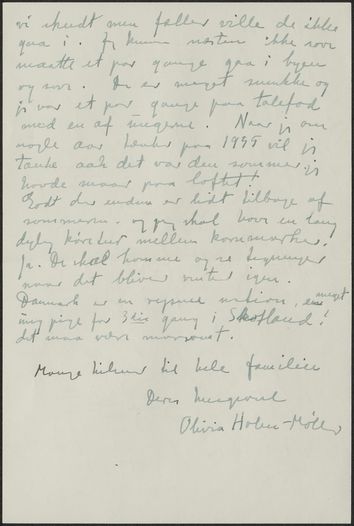 vi skudt men fæller ville de ikke
gaa i. Jeg kunne næsten ikke sove
maatte et par gange gaa i byen
og sove. De er meget smukke og
jeg var et par gange paa talefod
med en af ungerne. Naar jeg om
nogle aar tænker paa 1955 vil jeg
tænke aah det var den sommer jeg
havde maar paa loftet!
Godt der endnu er lidt tilbage af
sommeren. og jeg skal have en lang
dejlig køretur mellem kornmarker.
Ja. De skal komme og se tegninger
naar det bliver vinter igen.
Danmark er en rejsende nation, en meget
ung pige for 3die gang i Skotland!
det maa være morsomt.
Mange hilsner til hele familien
Deres hengivne
Olivia Holm-Møller